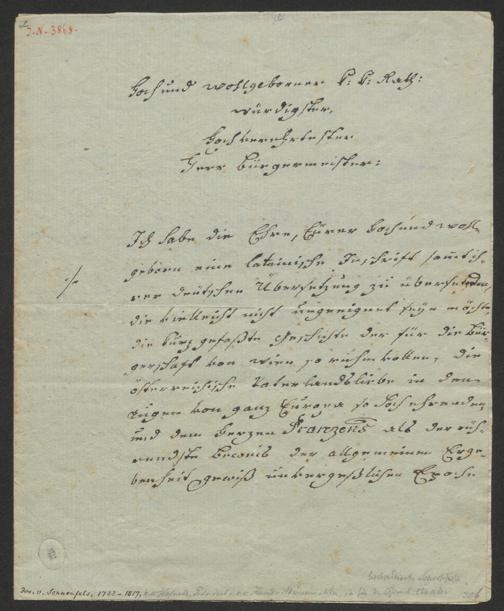 I.N. 3868.
Hoch und wohlgeborner k: k: Rath:
würdigster,
Hochverehrtester
Herr Bürgermeister:
Ich habe die Ehre, Eurer Hoch und wohl-
geborn eine lateinische Inschrift samt ih-
rer deutschen Übersetzung zu übersenden,
die vielleicht nicht ungeeignet seyn möchte,
die kurz gefaßte Geschichte der für die Bür-
gerschaft von Wien so ruhmvollen, die
österreichische Vaterlandsliebe in den
Augen von ganz Europa so hoch ehrenden,
und dem Herzen Franzens als der rüh-
rendste Beweis der allgemeinen Erge-
benheit gewiß unvergeßlichen Epoche
Jos. v. Sonnenfels, 1733-1817,